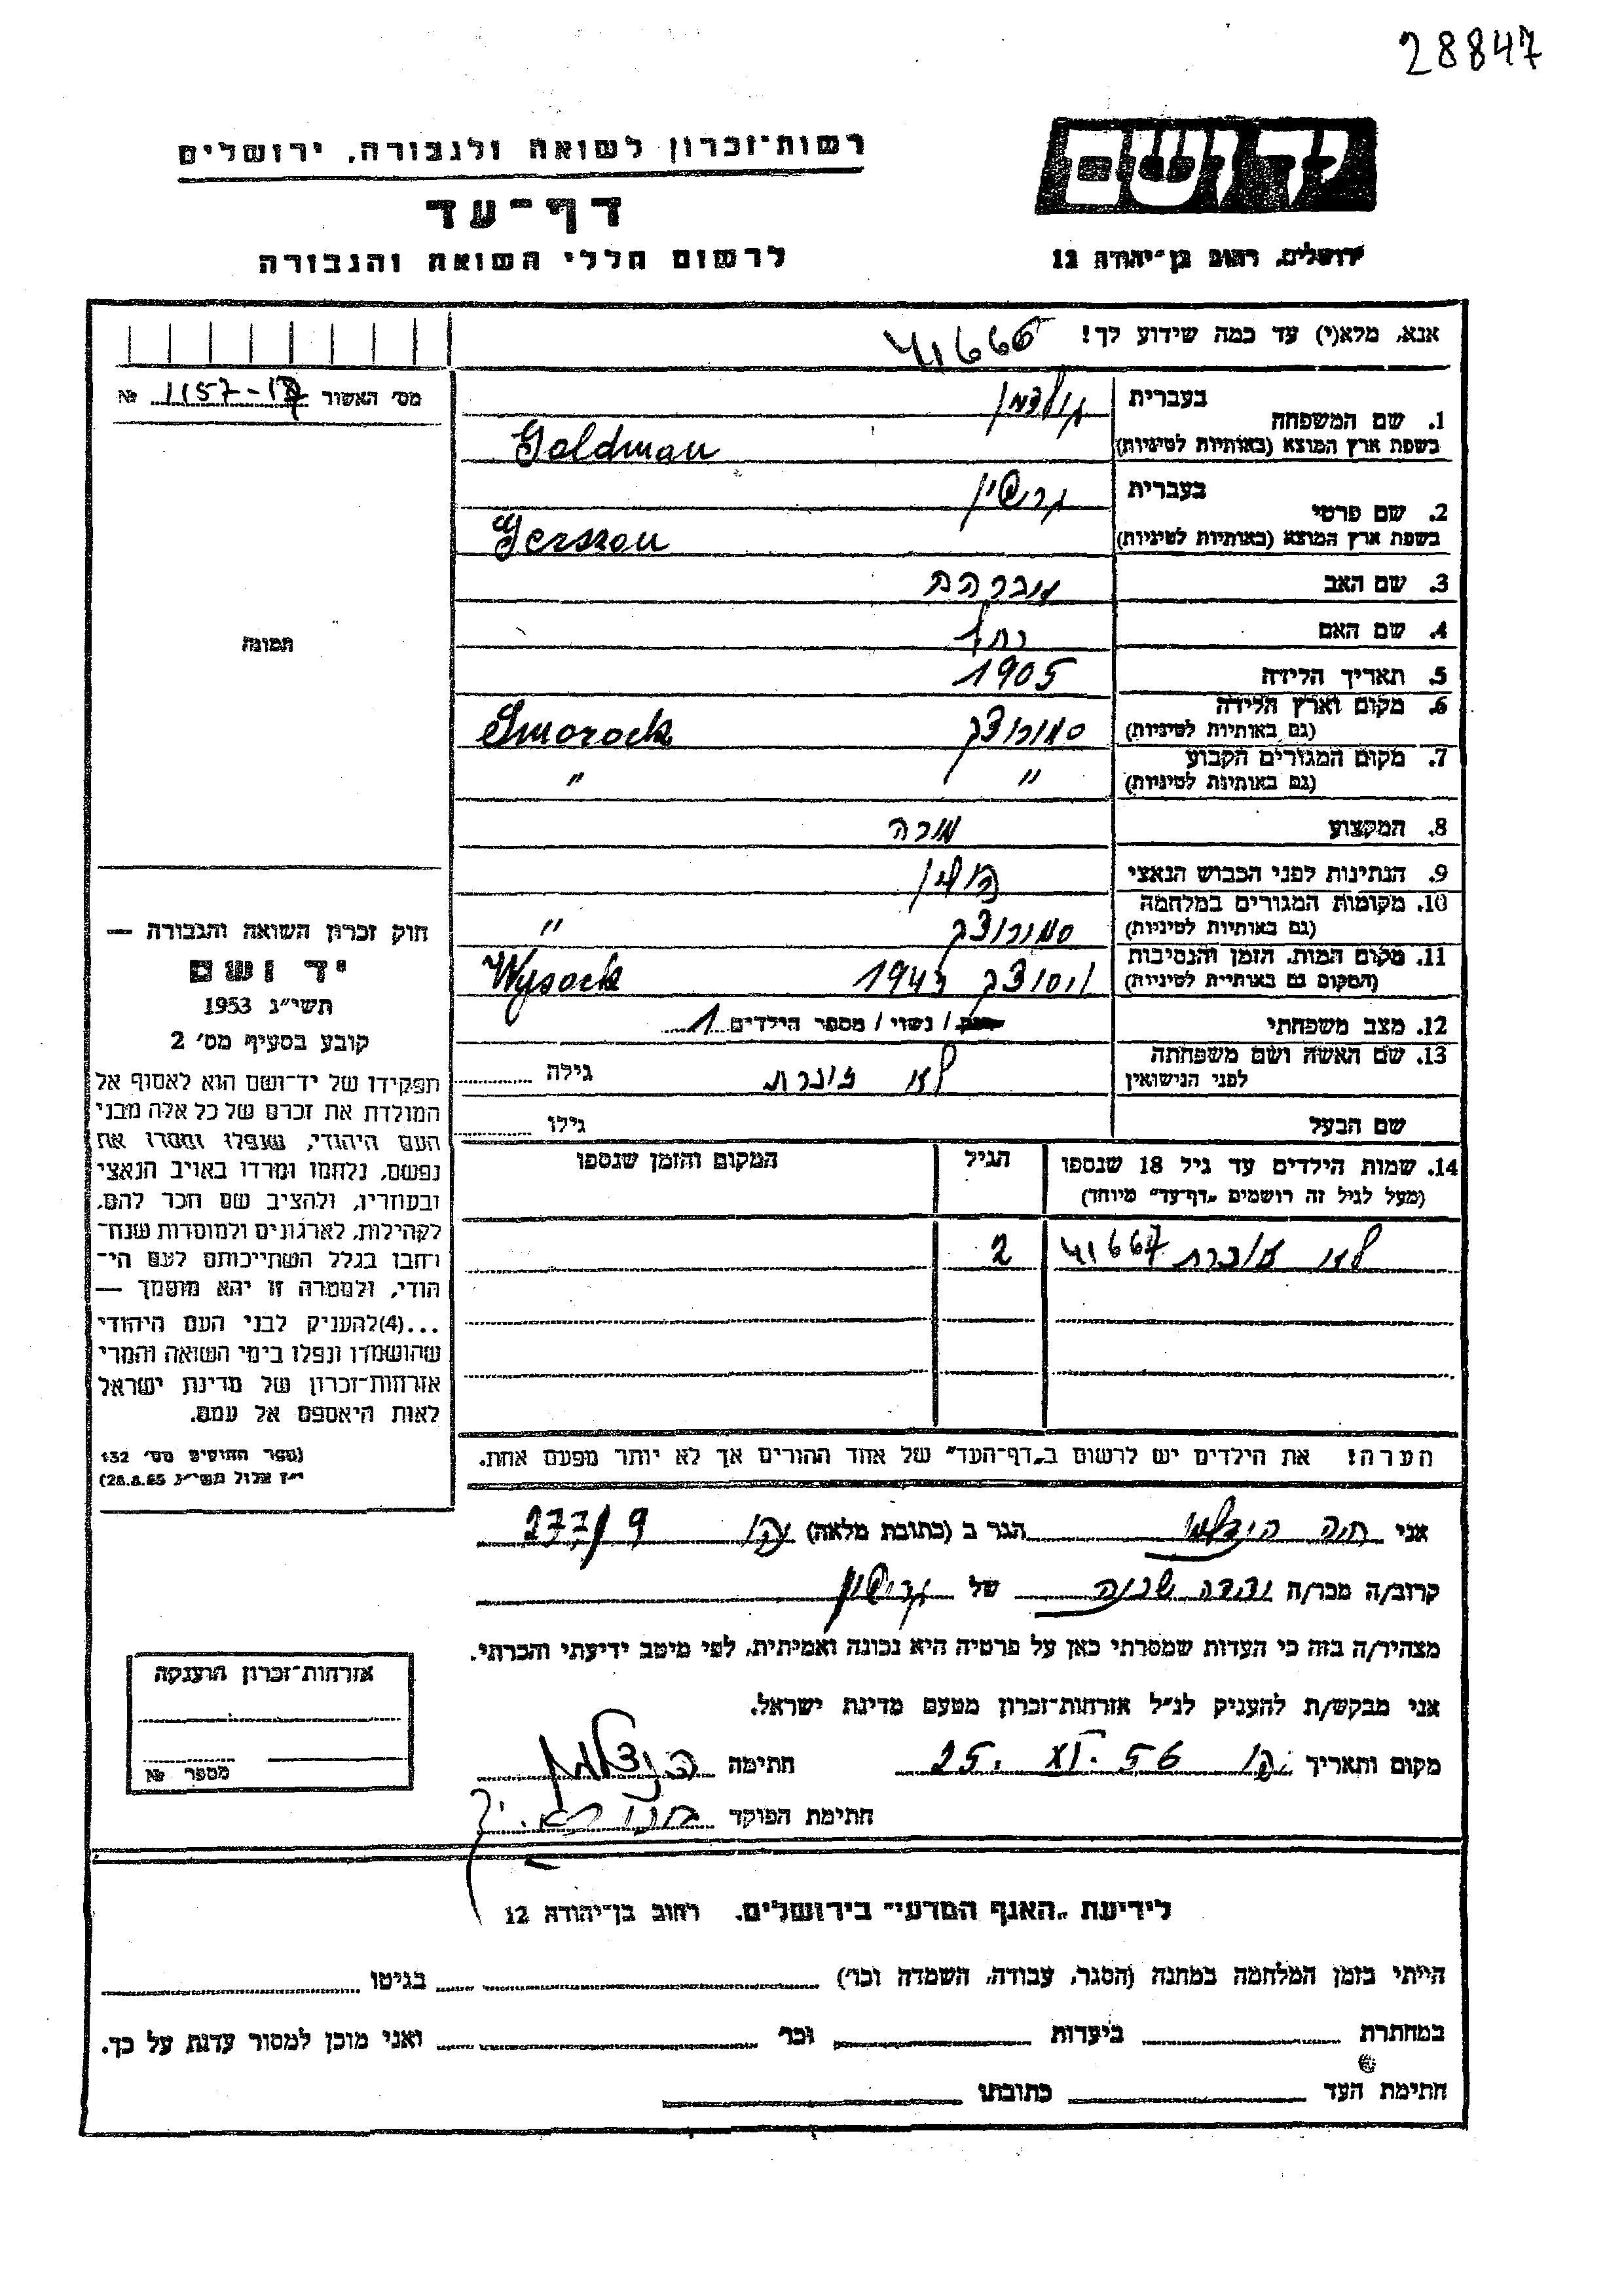 28847
יד ושם
ירושלים, רחוב בן־יהודה 12
רשות־זכרון לשואה ולגבורה, ירושלים
דף־עד
לרשום חללי השואה והגבורה
אנא, מלא(י) עד כמה שידוע לך!
41666
מס׳ האשור 1157-17 №
תמונה
1. שם המשפחה בעברית גולדמן
בשפת ארץ המוצא (באותיות לטיניות) Goldman
2. שם פרטי בעברית גרשון
בשפת ארץ המוצא (באותיות לטיניות) Gerszon
3. שם האב אברהם
4. שם האם רחל
5. תאריך הלידה 1905
6. מקום וארץ הלידה
(גם באותיות לטיניות) Smorock
7. מקום המגורים הקבוע
(גם באותיות לטיניות) " "
8. המקצוע מורה
9. הנתינות לפני הכבוש הנאצי פולין
10. מקומות המגורים במלחמה
(גם באותיות לטיניות) "
11. מקום המות, הזמן והנסיבות
(המקום גם באותיות לטיניות) ויסוצק 1943 Wysock
12. מצב משפחתי רווק / נשוי / מספר הילדים 1
13. שם האשה ושם משפחתה
לפני הנישואין גילה
שם הבעל גילו
14. שמות הילדים עד גיל 18 שנספו
(מעל לגיל זה רושמים „דף־עד״ מיוחד)
הגיל
המקום והזמן שנספו
41667 2
הערה! את הילדים יש לרשום ב„דף־העד״ של אחד ההורים אך לא יותר מפעם אחת.
חוק זכרון השואה והגבורה —
יד ושם
תשי״ג 1953
קובע בסעיף מס׳ 2
תפקידו של יד־ושם הוא לאסוף אל
המולדת את זכרם של כל אלה מבני
העם היהודי, שנפלו ומסרו את
נפשם, נלחמו ומרדו באויב הנאצי
ובעוזריו, ולהציב שם וזכר להם,
לקהילות, לארגונים ולמוסדות שנח־
רחבו בגלל השתייכותם לעם הי־
הודי, ולמטרה זו יהא מוסמך —
...(4)להעניק לבני העם היהודי
שהושמדו ונפלו בימי השואה והמרי
אזרחות־זכרון של מדינת ישראל
לאות היאספם אל עמם.
(ספר החוקים מס׳ 132
י״ז אלול תשי״ג 28.8.53)
אני חוה הנדלמן הגר ב (כתובת מלאה) עכו 277/9
קרוב/ה מכר/ה של גרשון
מצהיר/ה בזה כי העדות שמסרתי כאן על פרטיה היא נכונה ואמיתית, לפי מיטב ידיעתי והכרתי.
אני מבקש/ת להעניק לנ״ל אזרחות־זכרון מטעם מדינת ישראל.
מקום ותאריך עכו 25. XI. 56 חתימה הנדלמן
חתימת הפוקד
אזרחות־זכרון הוענקה
מספר №
לידיעת „האגף המדעי״ בירושלים, רחוב בן־יהודה 12
הייתי בזמן המלחמה במחנה (הסגר, עבודה, השמדה וכו׳) בגיטו
במחתרת ביערות וכו׳ ואני מוכן למסור עדות על כך.
חתימת העד כתובתו